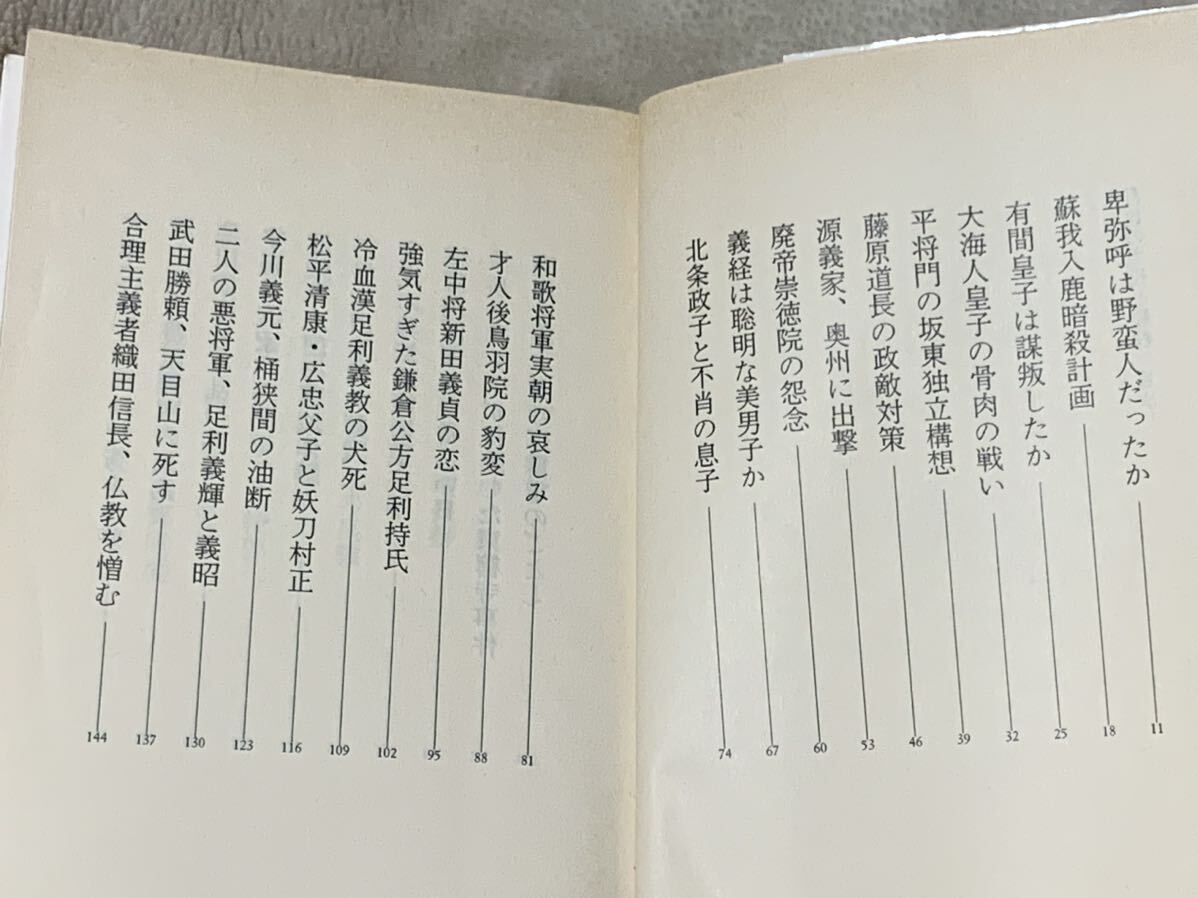 卑弥呼は野蛮人だったか 11
蘇我入鹿暗殺計画 18
有間皇子は謀叛したか 25
大海人皇子の骨肉の戦い 32
平将門の坂東独立構想 39
藤原道長の政敵対策 46
源義家、奥州に出撃 53
廃帝崇徳院の怨念 60
義経は聡明な美男子か 67
北条政子と不肖の息子 74
和歌将軍実朝の哀しみ 81
才人後鳥羽院の豹変 88
左中将新田義貞の恋 95
強気すぎた鎌倉公方足利持氏 102
冷血漢足利義教の犬死 109
松平清康・広忠父子と妖刀村正 116
今川義元、桶狭間の油断 123
二人の悪将軍、足利義輝と義昭 130
武田勝頼、天目山に死す 137
合理主義者織田信長、仏教を憎む 144